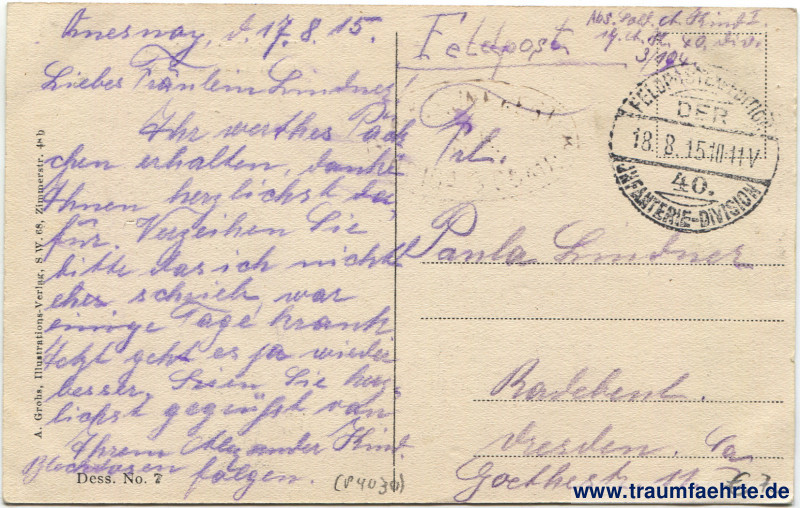 Amesnay, d. 17.8.15.
Liebes Fräulein Lindner!
Ihr werthes Päck
chen erhalten, danke
Ihnen herzlichst da
für. Verzeihen Sie
bitte das ich nicht
eher schrieb war
einige Tage krank
Jetzt geht es ja wieder
besser. Seien Sie herz
lichst gegrüßt von
Ihrem Alexander Kind.
folgen.
Feldpost
Abs. Sold. A. Kind I.
40. Div.
3/104
FELDPOSTEXPEDITION
DER
18.8.15 10-11V
40.
INFANTERIE-DIVISION
Frl.
Paula Lindner
Radebeul.
Dresden.
Goethestr. 11
A. Grohs, Illustrations-Verlag, S.W. 68, Zimmerstr. 48b
Dess. No. 7
www.traumfaehrte.de